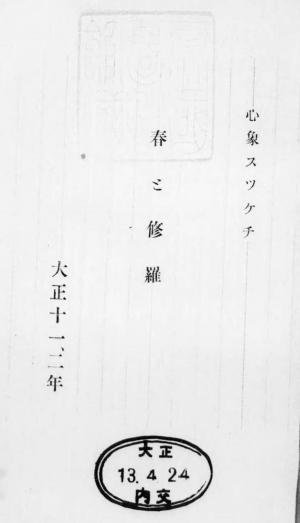 心象スツケチ
春と修羅
大正十一、二年
大正
13.4.24
内交